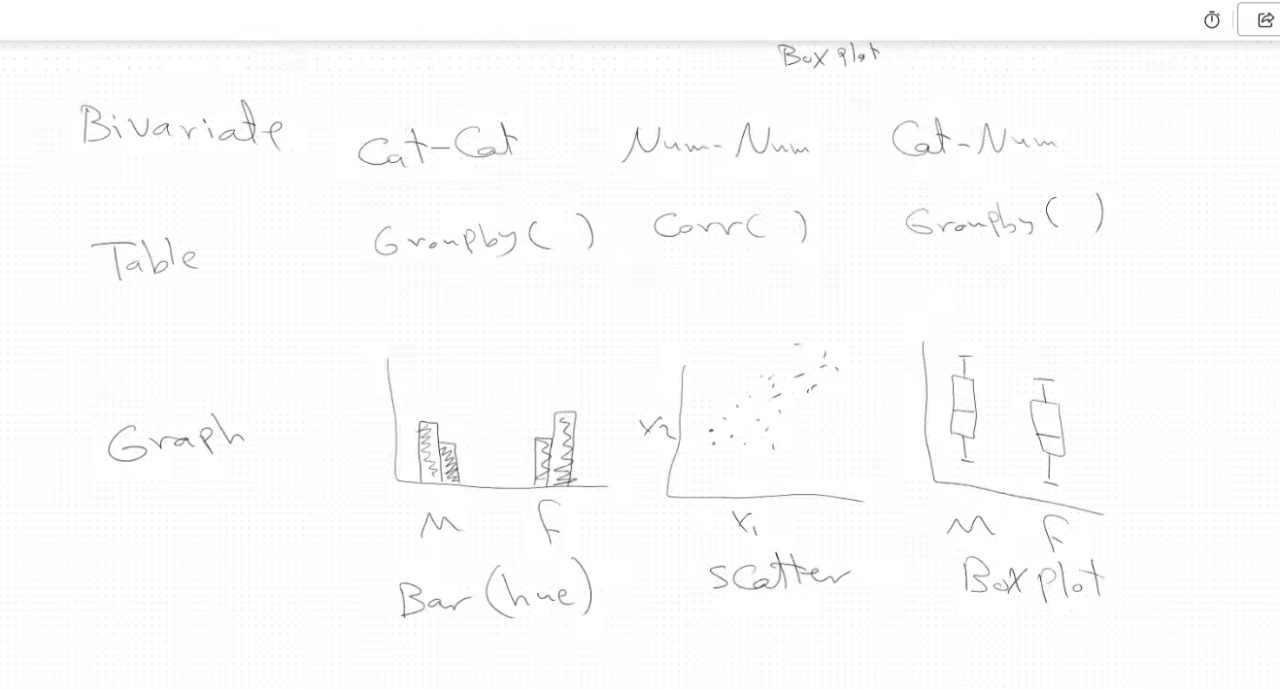 Box plot
Bivariate Cat-Cat Num-Num Cat-Num
Table Groupby( ) Corr( ) Groupby( )
Graph
X2
M F X1 M F
Bar (hue) Scatter Box plot